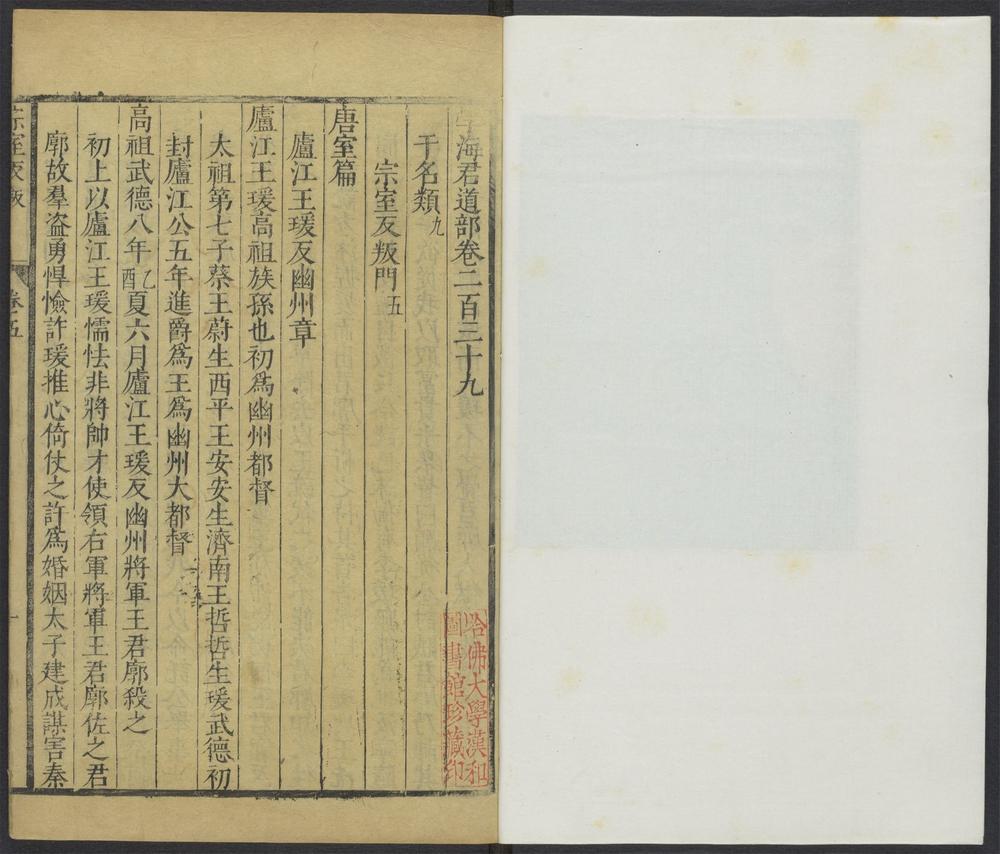 學海君道部卷二百三十九
干名類九
宗室反叛門五
唐室篇
廬江王瑗反幽州章
廬江王瑗高祖族孫也初爲幽州都督
太祖第七子蔡王蔚生西平王安安生濟南王哲哲生瑗武德初
封廬江公五年進爵爲王爲幽州大都督
高祖武德八年乙酉夏六月廬江王瑗反幽州將軍王君廓殺之
初上以廬江王瑗懦怯非將帥才使領右軍將軍王君廓佐之君
廓故羣盗勇悍憸詐瑗推心倚仗之許爲婚姻太子建成謀害秦
宗室反叛
卷五
一
哈佛大學漢和
圖書館珍藏印